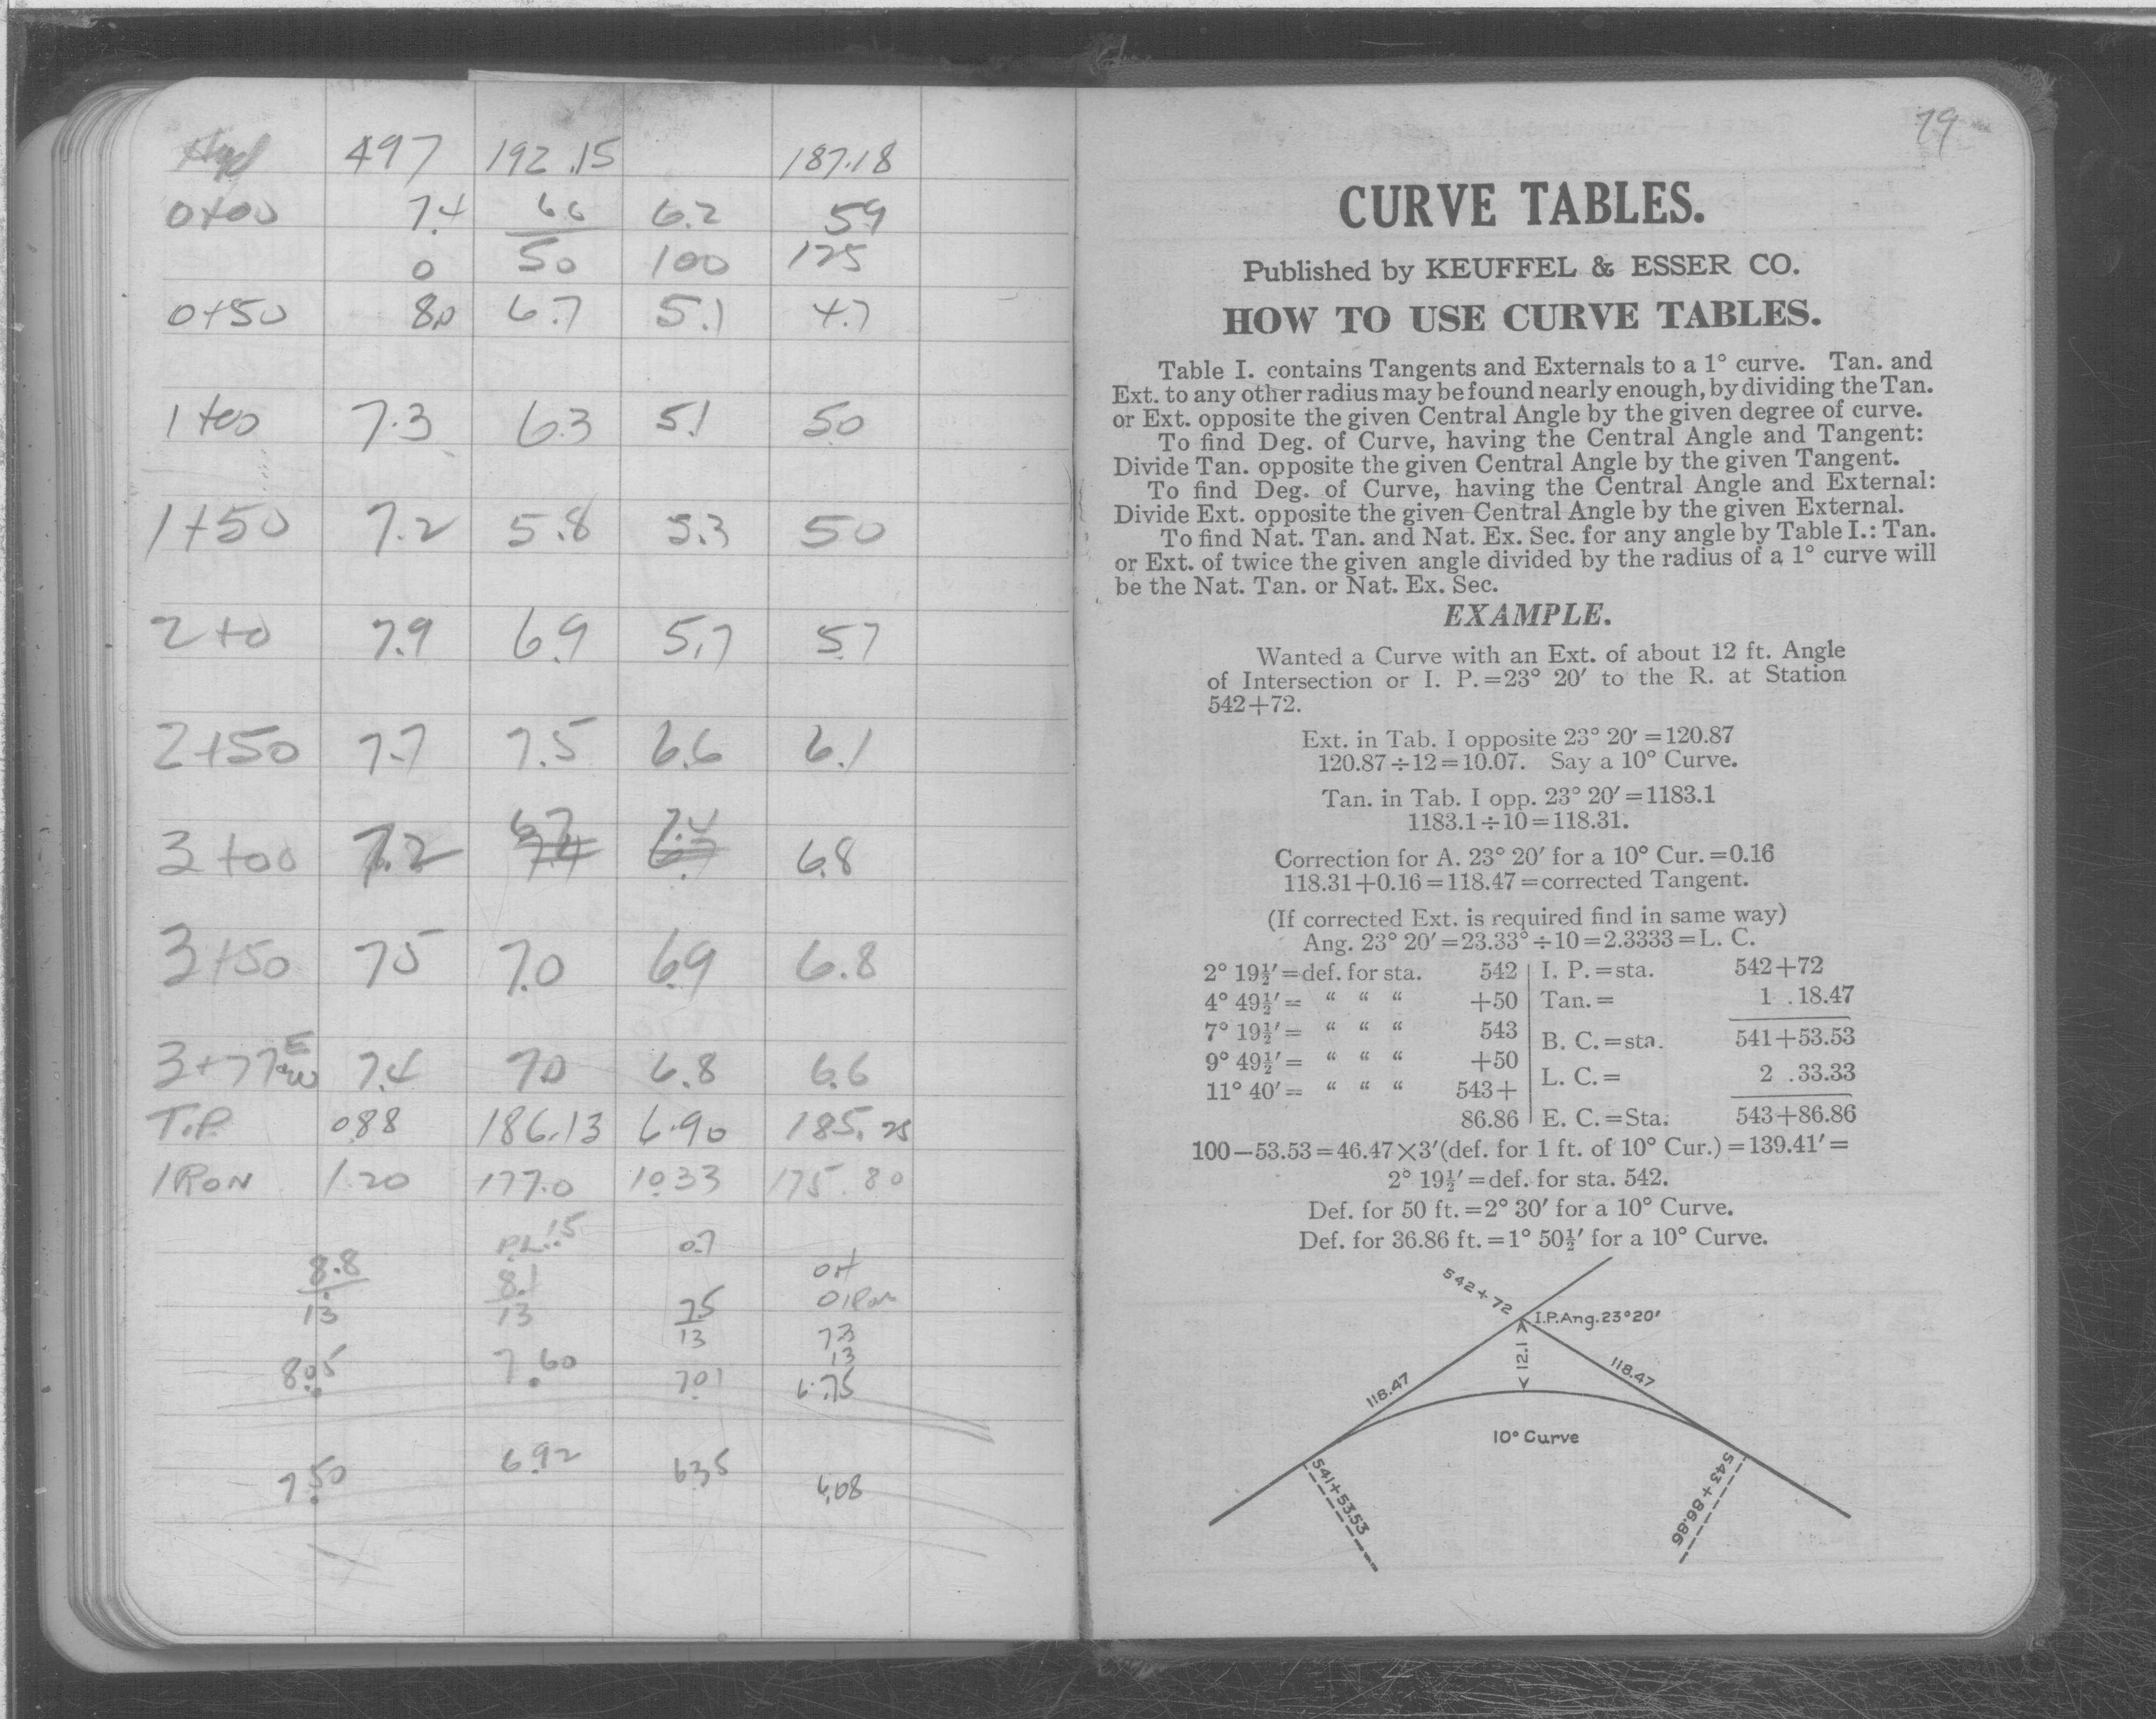 Hyd 497 192.15 187.18
0+00 7.4 6.6 6.2 5.9
0 50 100 125
0+50 8.0 6.7 5.1 4.7
1+00 7.3 6.3 5.1 5.0
1+50 7.2 5.8 5.3 5.0
2+0 7.9 6.9 5.7 5.7
2+50 7.7 7.5 6.6 6.1
6.7 7.4
3+00 7.2 6.8
3+50 7.5 7.0 6.9 6.8
3+77 7.4 7.0 6.8 6.6
T.P. 088 186.13 6.90 185.25
IRON 1.20 177.0 10.33 175.80
0.7
8.8 8.1
13 13 7.5
13 7.3
13
8.05 7.60 7.01 6.75
7.50 6.92 6.35 6.08
79
CURVE TABLES.
Published by KEUFFEL & ESSER CO.
HOW TO USE CURVE TABLES.
Table I. contains Tangents and Externals to a 1° curve. Tan. and
Ext. to any other radius may be found nearly enough, by dividing the Tan.
or Ext. opposite the given Central Angle by the given degree of curve.
To find Deg. of Curve, having the Central Angle and Tangent:
Divide Tan. opposite the given Central Angle by the given Tangent.
To find Deg. of Curve, having the Central Angle and External:
Divide Ext. opposite the given Central Angle by the given External.
To find Nat. Tan. and Nat. Ex. Sec. for any angle by Table I.: Tan.
or Ext. of twice the given angle divided by the radius of a 1° curve will
be the Nat. Tan. or Nat. Ex. Sec.
EXAMPLE.
Wanted a Curve with an Ext. of about 12 ft. Angle
of Intersection or I. P.=23° 20′ to the R. at Station
542+72.
Ext. in Tab. I opposite 23° 20′=120.87
120.87÷12=10.07. Say a 10° Curve.
Tan. in Tab. I opp. 23° 20′=1183.1
1183.1÷10=118.31.
Correction for A. 23° 20′ for a 10° Cur.=0.16
118.31+0.16=118.47=corrected Tangent.
(If corrected Ext. is required find in same way)
Ang. 23° 20′=23.33°÷10=2.3333=L. C.
2° 19½′=def. for sta. 542 I. P.=sta. 542+72
4° 49½′= “ “ “ +50 Tan.= 1 .18.47
7° 19½′= “ “ “ 543 B. C.=sta. 541+53.53
9° 49½′= “ “ “ +50 L. C.= 2 .33.33
11° 40′= “ “ “ 543+
86.86 E. C.=Sta. 543+86.86
100−53.53=46.47×3′(def. for 1 ft. of 10° Cur.)=139.41′=
2° 19½′=def. for sta. 542.
Def. for 50 ft.=2° 30′ for a 10° Curve.
Def. for 36.86 ft.=1° 50½′ for a 10° Curve.
542+72
I.P.Ang.23°20′
12.1
118.47
118.47
10° Curve
541+53.53
543+86.86